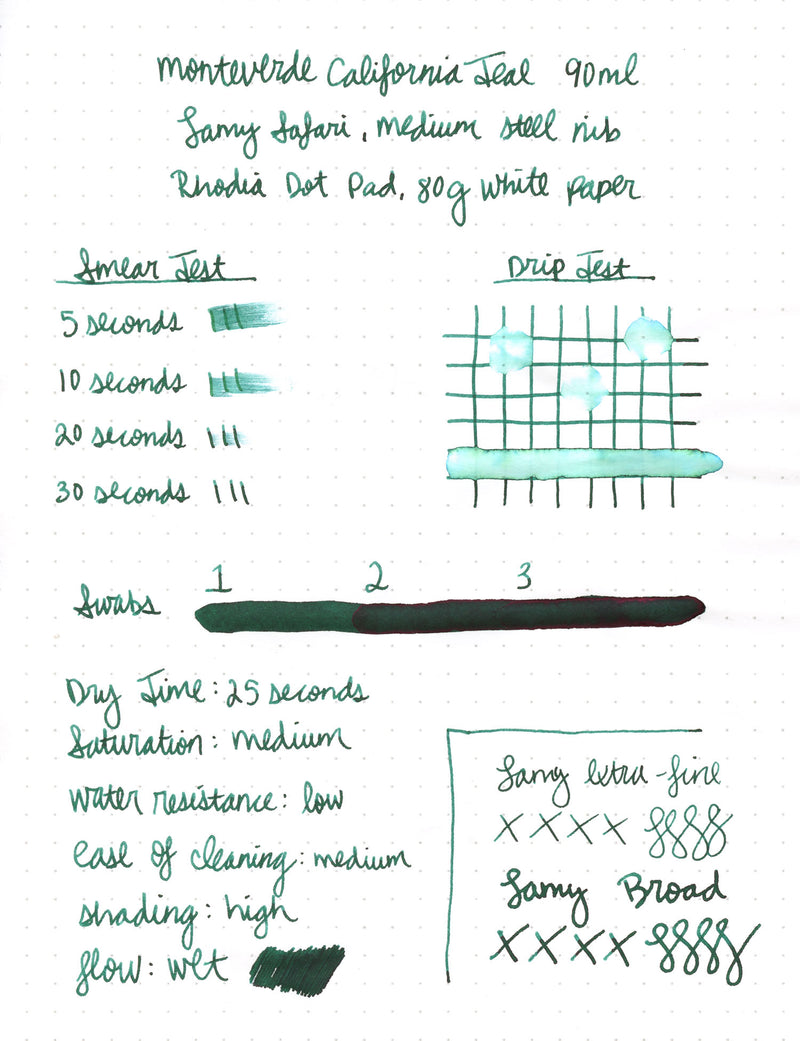 Monteverde California Teal 90ml
Lamy Safari, medium steel nib
Rhodia Dot Pad, 80g white paper
Smear Test
5 seconds
10 seconds
20 seconds
30 seconds
Drip Test
Swabs 1 2 3
Dry Time: 25 seconds
Saturation: medium
water resistance: low
ease of cleaning: medium
shading: high
flow: wet
Lamy extra-fine
XXXX
Lamy Broad
XXXX